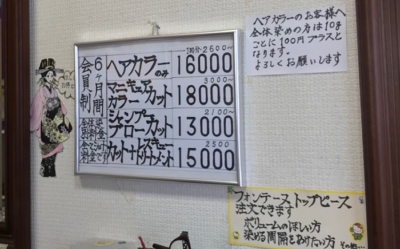 6ヶ月間
会員制
1回分 2600〜
ヘアカラーのみ 16000
3000〜
マニキュア
カラーカット 18000
2100〜
シャンプー
ブローカット 13000
2500
カット+トリートメント 15000
ヘアカラーのお客様へ
全体染めの方は10g
ごとに100円プラスと
なります。
よろしくお願いします
フォンテーヌ トップピース
注文できます
ボリュームのほしい方
染める間隔をあけたい方
その他…